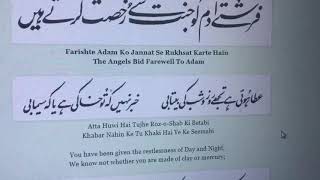 فرشتے آدم کو جنت سے رخصت کرتے ہیں
Farishte Adam Ko Jannat Se Rukhsat Karte Hain
The Angels Bid Farewell To Adam
عطا ہوئی ہے تجھے روز و شب کی بیتابی خبر نہیں کہ تو خاکی ہے یا کہ سیمابی
Atta Huwi Hai Tujhe Roz-o-Shab Ki Betabi
Khabar Nahin Ke Tu Khaki Hai Ye Ke Seemabi
You have been given the restlessness of Day and Night,
We know not whether you are made of clay or mercury;